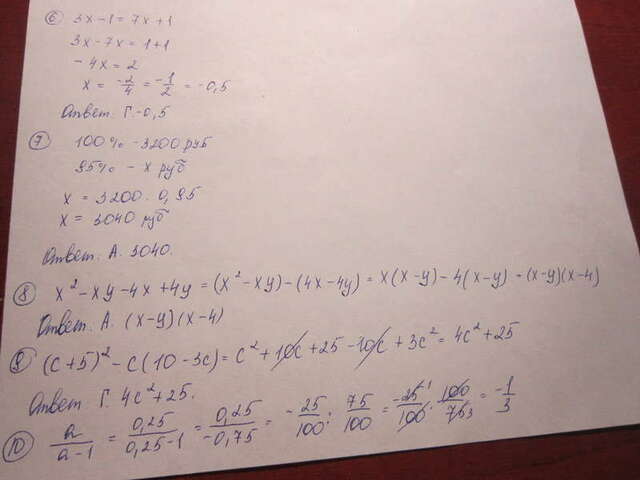 ⑥ 3x-1=7x+1
3x-7x=1+1
-4x=2
x = -2/4 = -1/2 = -0,5
Ответ: Г.-0,5
⑦ 100% - 3200 руб
95% - x руб
x = 3200 · 0,95
x = 3040 руб
Ответ: А. 3040.
⑧ x²-xy-4x+4y = (x²-xy)-(4x-4y) = x(x-y)-4(x-y) = (x-y)(x-4)
Ответ: А. (x-y)(x-4)
⑨ (c+5)²-c(10-3c) = c²+10c+25-10c+3c² = 4c²+25
Ответ: Г. 4c²+25.
⑩ a/(a-1) = 0,25/(0,25-1) = 0,25/(-0,75) = -25/100 : 75/100 = -25¹/100 · 100/75₃ = -1/3